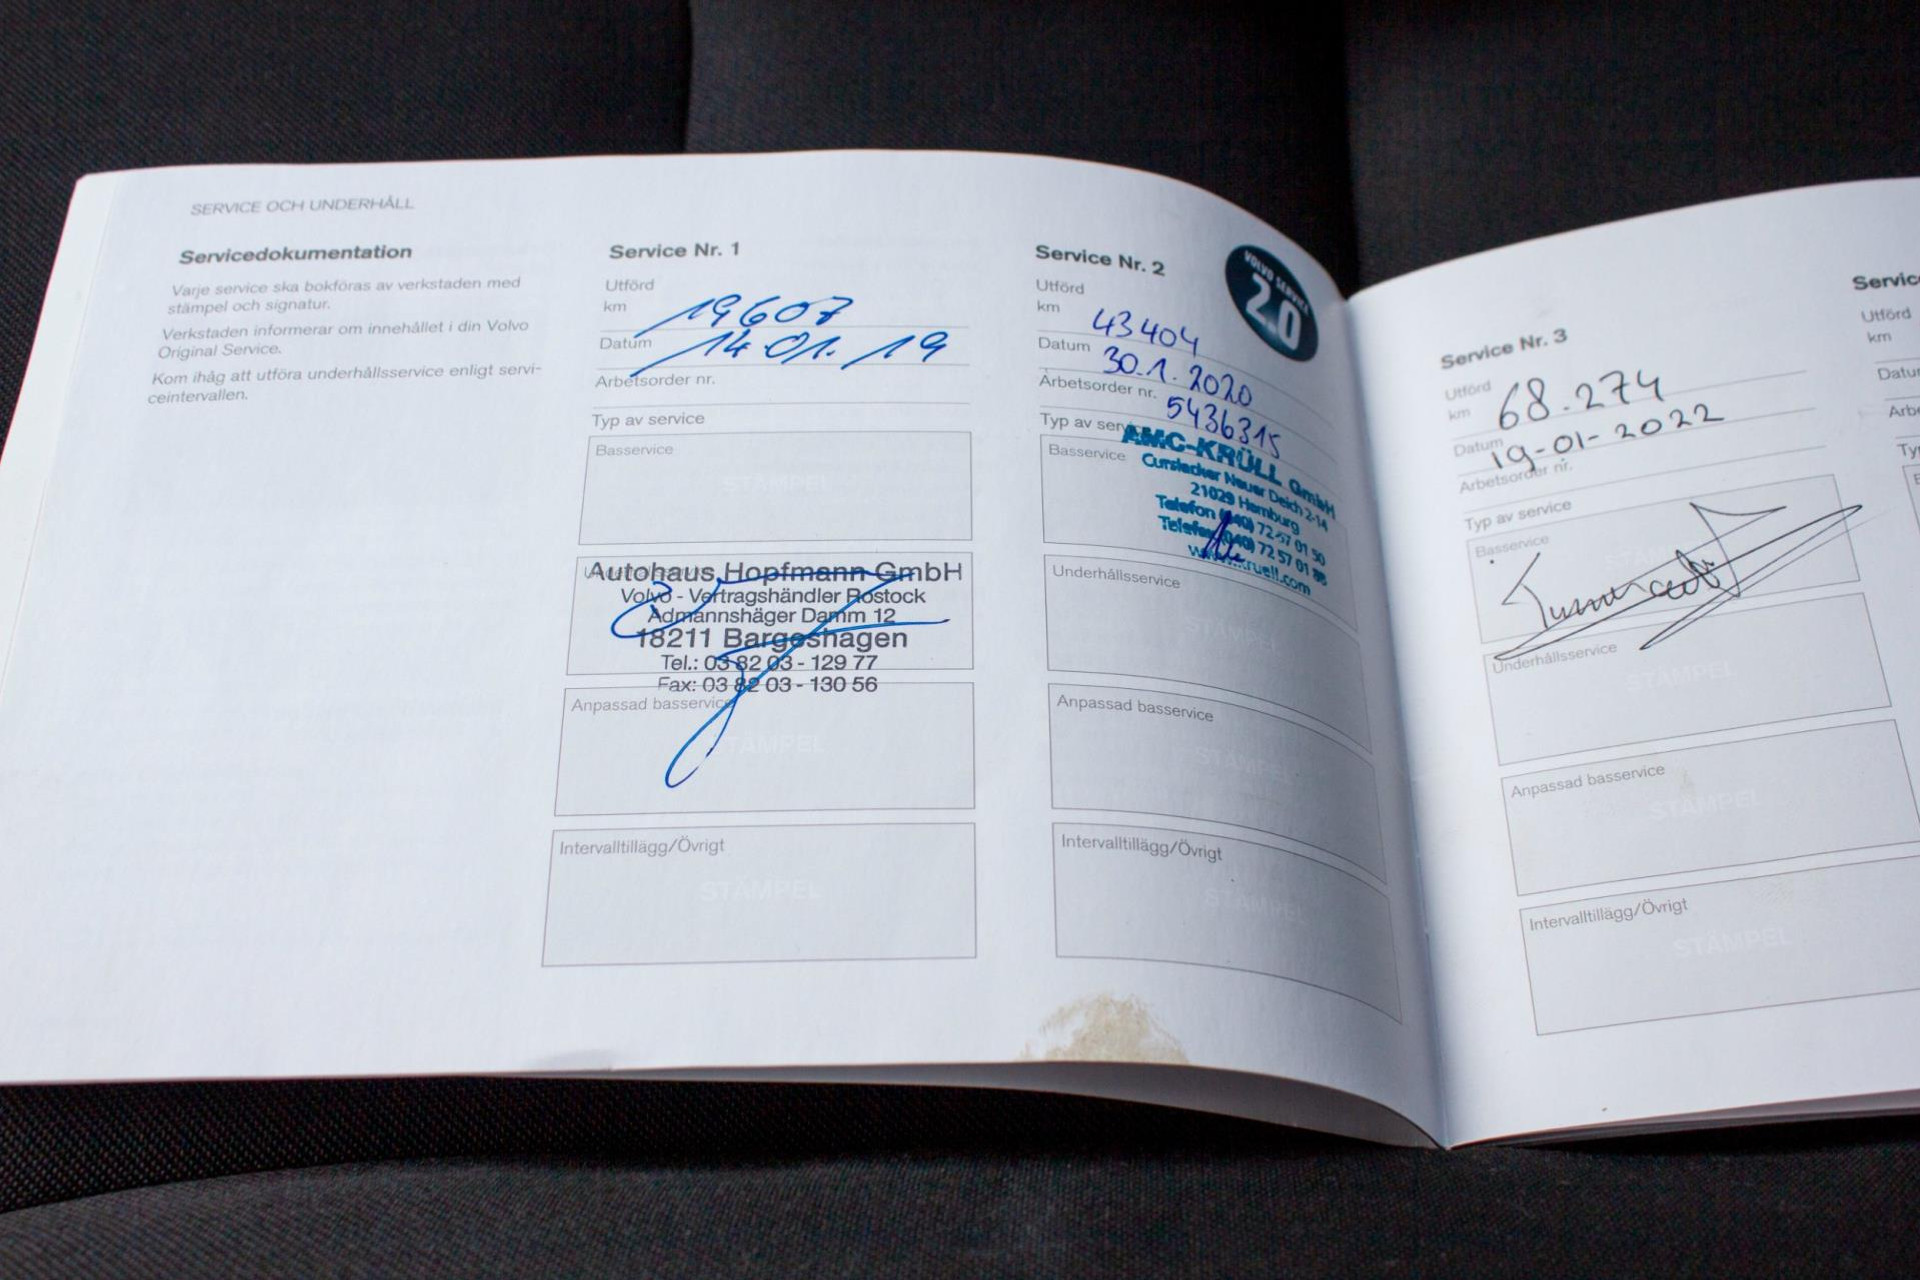 SERVICE OCH UNDERHÅLL
Servicedokumentation
Varje service ska bokföras av verkstaden med
stämpel och signatur.
Verkstaden informerar om innehållet i din Volvo
Original Service.
Kom ihåg att utföra underhållsservice enligt servi-
ceintervallen.
Service Nr. 1
Utförd
km 19607
Datum 14.01.19
Arbetsorder nr.
Typ av service
Basservice
STÄMPEL
Autohaus Hopfmann GmbH
Volvo - Vertragshändler Rostock
Admannshäger Damm 12
18211 Bargeshagen
Tel.: 03 82 03 - 129 77
Fax: 03 82 03 - 130 56
Anpassad basservice
STÄMPEL
Intervalltillägg/Övrigt
STÄMPEL
Service Nr. 2
VOLVO SERVICE
2.0
Utförd
km 43404
Datum 30.1.2020
Arbetsorder nr. 5436315
Typ av service
Basservice
AMC-KRÜLL GmbH
Curslacker Neuer Deich 2-14
21029 Hamburg
Telefon (040) 72 57 01 50
Telefax (040) 72 57 01
Underhållsservice
STÄMPEL
Anpassad basservice
STÄMPEL
Intervalltillägg/Övrigt
STÄMPEL
Service Nr. 3
Utförd
km 68.274
Datum 19-01-2022
Arbetsorder nr.
Typ av service
Basservice
Underhållsservice
STÄMPEL
Anpassad basservice
STÄMPEL
Intervalltillägg/Övrigt
STÄMPEL
Servic
Utförd
km
Datu
Arbe
Typ